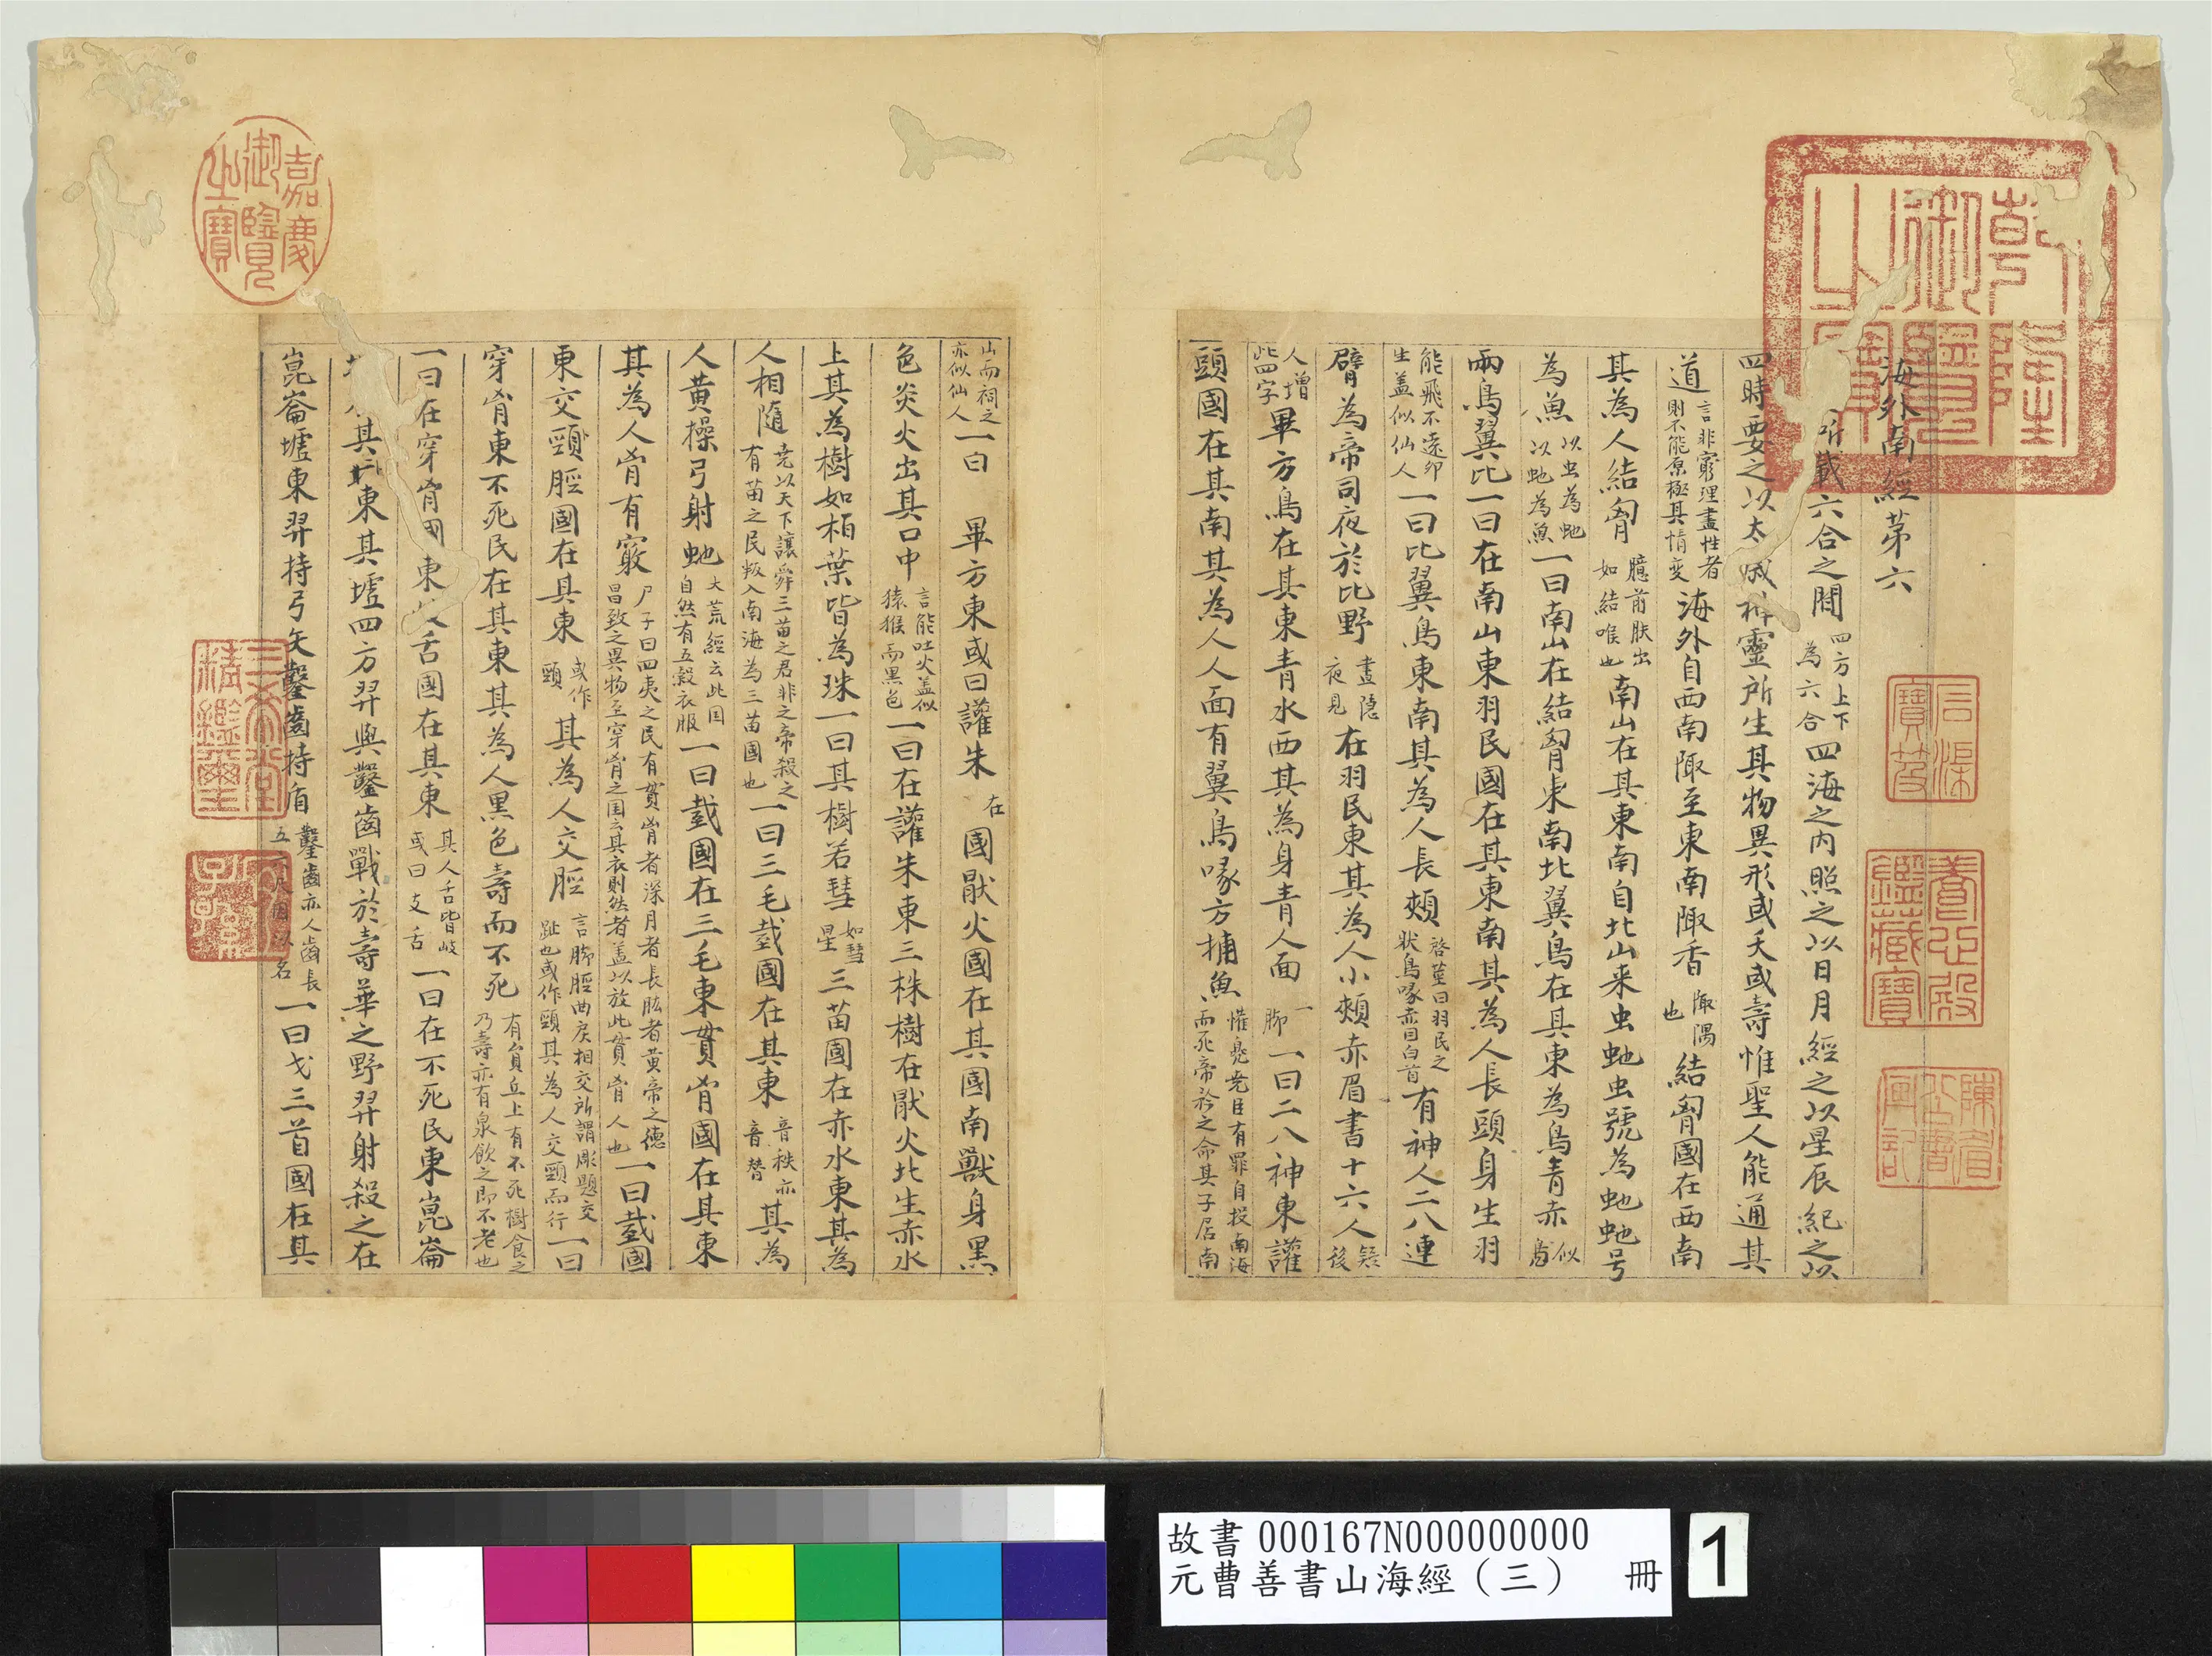 海外南經第六
所載六合之間四方上下為六合四海之內照之以日月經之以星辰紀之以
四時要之以太歲神靈所生其物異形或夭或壽惟聖人能通其
道言非窮理盡性者則不能原極其情变海外自西南陬至東南陬香陬隅也結匈國在西南
其為人結匈臆前胅出如結喉也南山在其東南自北山来虫虵虫號為虵虵号
為魚以虫為虵以虵為魚一曰南山在結匈東南比翼鳥在其東為鳥青赤似鳧
兩鳥翼比一曰在南山東羽民國在其東南其為人長頭身生羽
能飛不遠卵生盖似仙人一曰比翼鳥東南其為人長頰啓筮曰羽民之狀鳥喙赤目白首有神人二八連
臂為帝司夜於比野晝隐夜見在羽民東其為人小頰赤眉書十六人疑後
人增此四字畢方鳥在其東青水西其為身青人面一脚一曰二八神東讙
頭國在其南其為人人面有翼鳥喙方捕魚讙兜尭臣有罪自投南海而死帝矜之命其子居南
山而祠之亦似仙人一曰畢方東或曰讙朱在國猒火國在其國南獸身黑
色炎火出其口中言能吐火盖似猿猴而黑色一曰在讙朱東三株樹在猒火北生赤水
上其為樹如栢葉皆為珠一曰其樹若彗如彗星三苗國在赤水東其為
人相隨尭以天下讓舜三苗之君非之帝殺之有苗之民叛入南海為三苗國也一曰三毛臷國在其東音秩亦音替其為
人黄操弓射虵大荒經云此国自然有五穀衣服一曰臷國在三毛東貫胷國在其東
其為人胷有竅尸子曰四夷之民有貫胷者深目者長肱者黄帝之德昌致之異物至穿胷之国云其衣則然者盖以放此貫胷人也一曰臷國
東交頸脛國在其東或作頸其為人交脛言脚脛曲戾相交所謂彫題交趾也或作頸其為人交頸而行一曰
穿胷東不死民在其東其為人黒色壽而不死有員丘上有不死樹食之乃壽亦有泉飲之即不老也
一曰在穿胷國東岐舌國在其東其人舌皆岐或曰支舌一曰在不死民東崑崙
其東其墟四方羿與鑿齒戰於壽華之野羿射殺之在
崑崙墟東羿持弓矢鑿齒持盾鑿齒亦人齒長五六尺因以名一曰戈三首國在其
乾隆御覽之寶
嘉慶御覽之寶
養心殿鑑藏寶
三希堂精鑑璽
石渠寶笈
宜子孫
故書 000167N000000000
元曹善書山海經(三) 冊
1